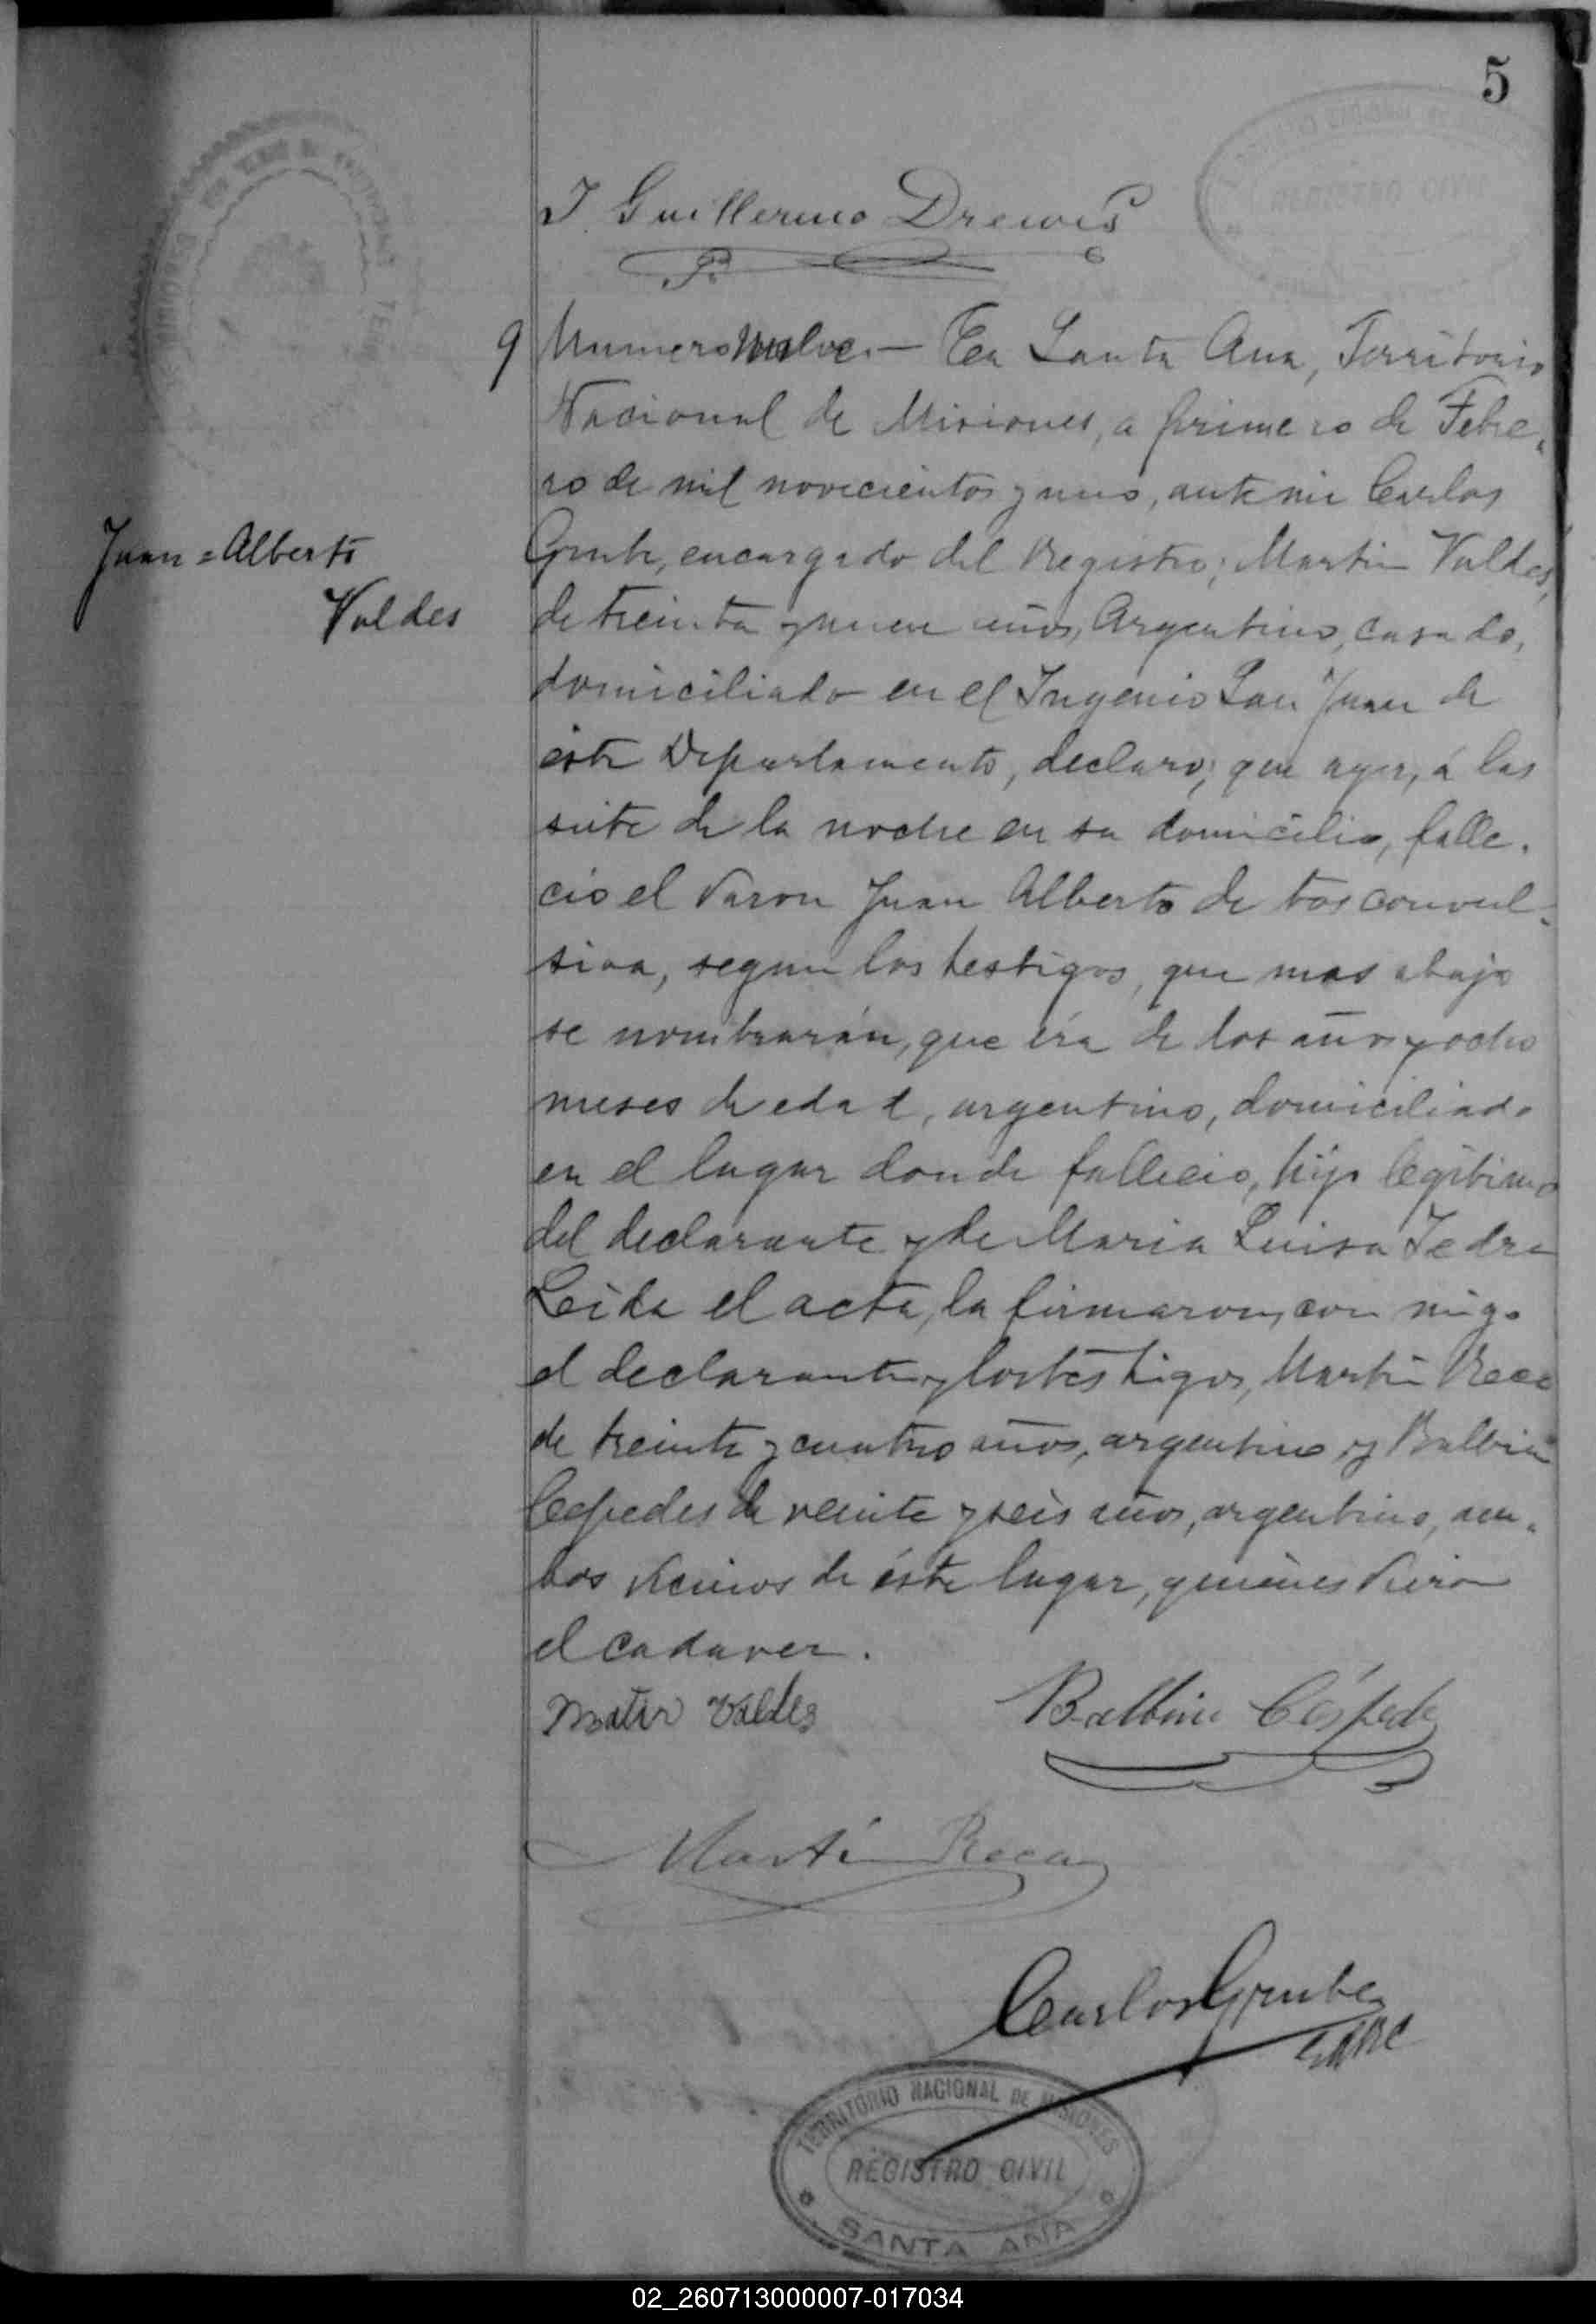 5
J. Guillermo Drewes
9 Numero nueve.— En Santa Ana, Territorio
Nacional de Misiones, a primero de Febre-
ro de mil novecientos y uno, ante mi Carlos
Grube, encargado del Registro; Martin Valdes,
Juan = Alberto
Valdes
de treinta y nueve años, Argentino, casado,
domiciliado en el Ingenio San Juan de
éste Departamento, declaro; que ayer, á las
siete de la noche en su domicilio, falle-
cio el varon Juan Alberto de tos convul-
siva, segun los testigos, que mas abajo
se nombrarán, que éra de dos años y ocho
meses de edad, argentino, domiciliado
en el lugar donde fallecio, hijo legitimo
del declarante y de Maria Luisa
Leida el acta, la firmaron, con migo
el declarante y los testigos, Martin Roca
de treinta y cuatro años, argentino y Balbin
Cespedes de veinte y seis años, argentino, am-
bos vecinos de éste lugar, quiénes vieron
el cadaver.
Matin Valdes
Balbino Céspede
Martin Roca
Carlos Grube
TERRITORIO NACIONAL DE MISIONES
REGISTRO CIVIL
SANTA ANA
02_260713000007-017034